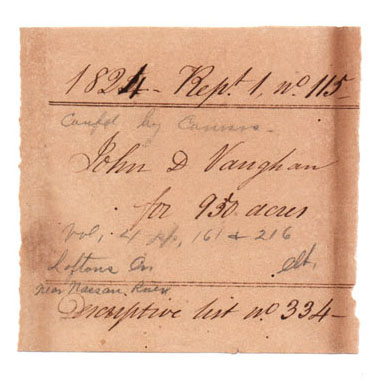 1824 - Rept. 1, no. 115
Conf'd by Comrs.
John D Vaughan
for 950 acres
Vol. 4 pp. 161 & 216
Loftons
near Nassau River
Descriptive list no. 334